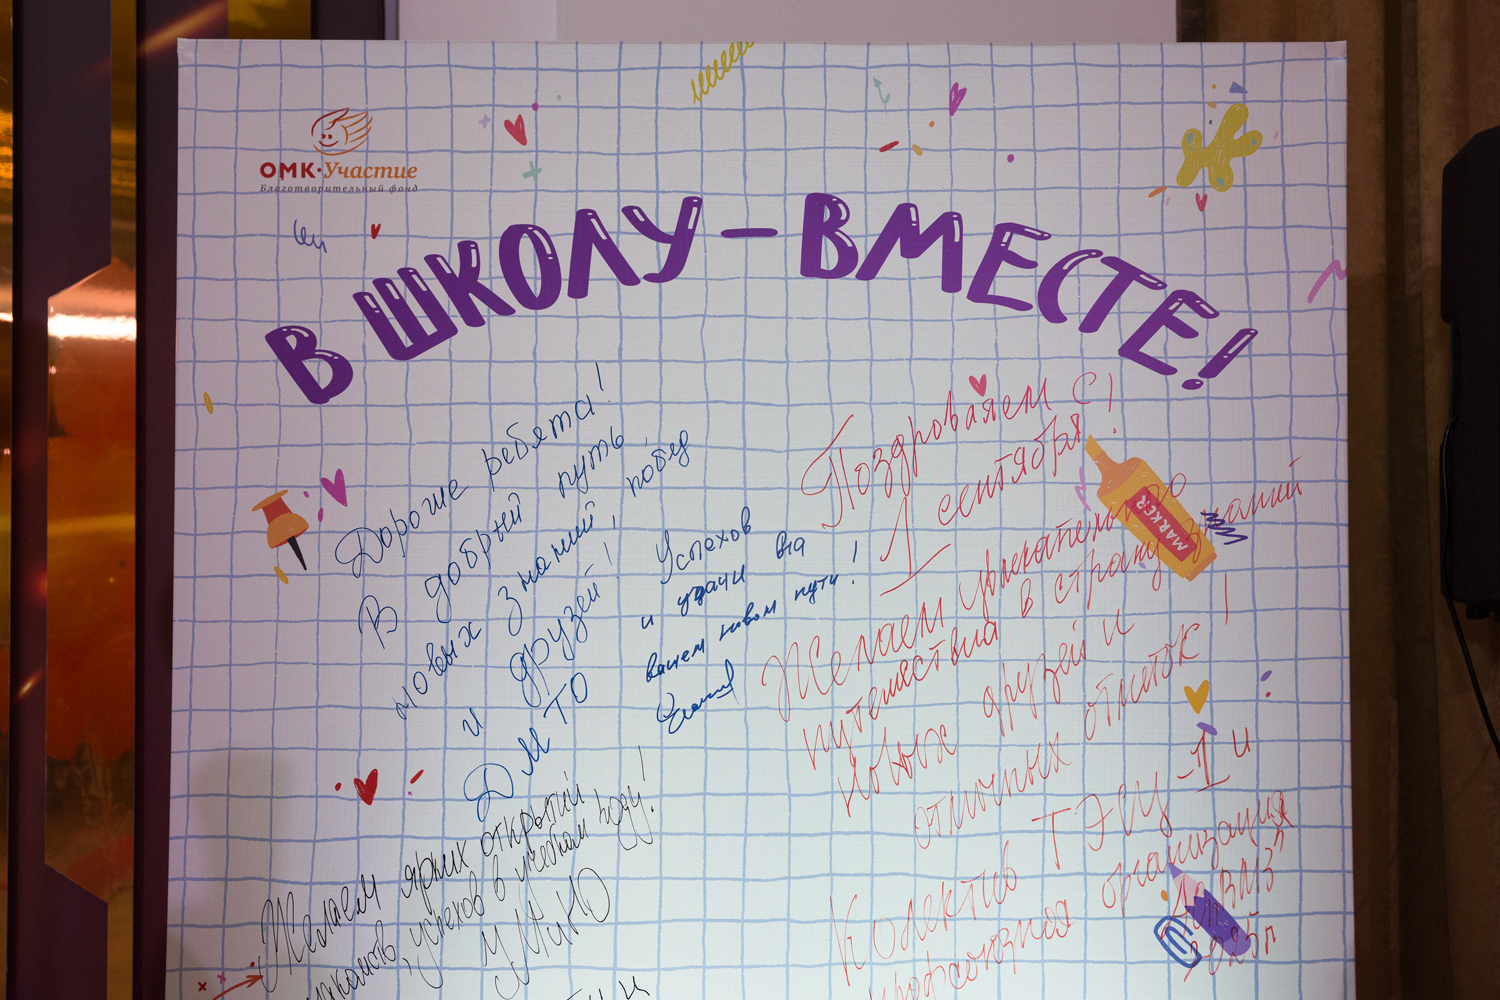 ОМК·Участие
Благотворительный фонд
В ШКОЛУ – ВМЕСТЕ!
Дорогие ребята!
В добрый путь
новых знаний, побед
и друзей!
ДМТО
Успехов
и удачи на
вашем новом пути!
Желаем ярких открытий
успехов в учебном году!
УМиНО
Поздровляем с
1 сентября!
Желаем увлекательного
путешествия в страну знаний
новых друзей и
отличных отметок!
Колектив ТЭСЦ-1 и
профсоюзная организация
"ВМЗ"
2025г
MARKER